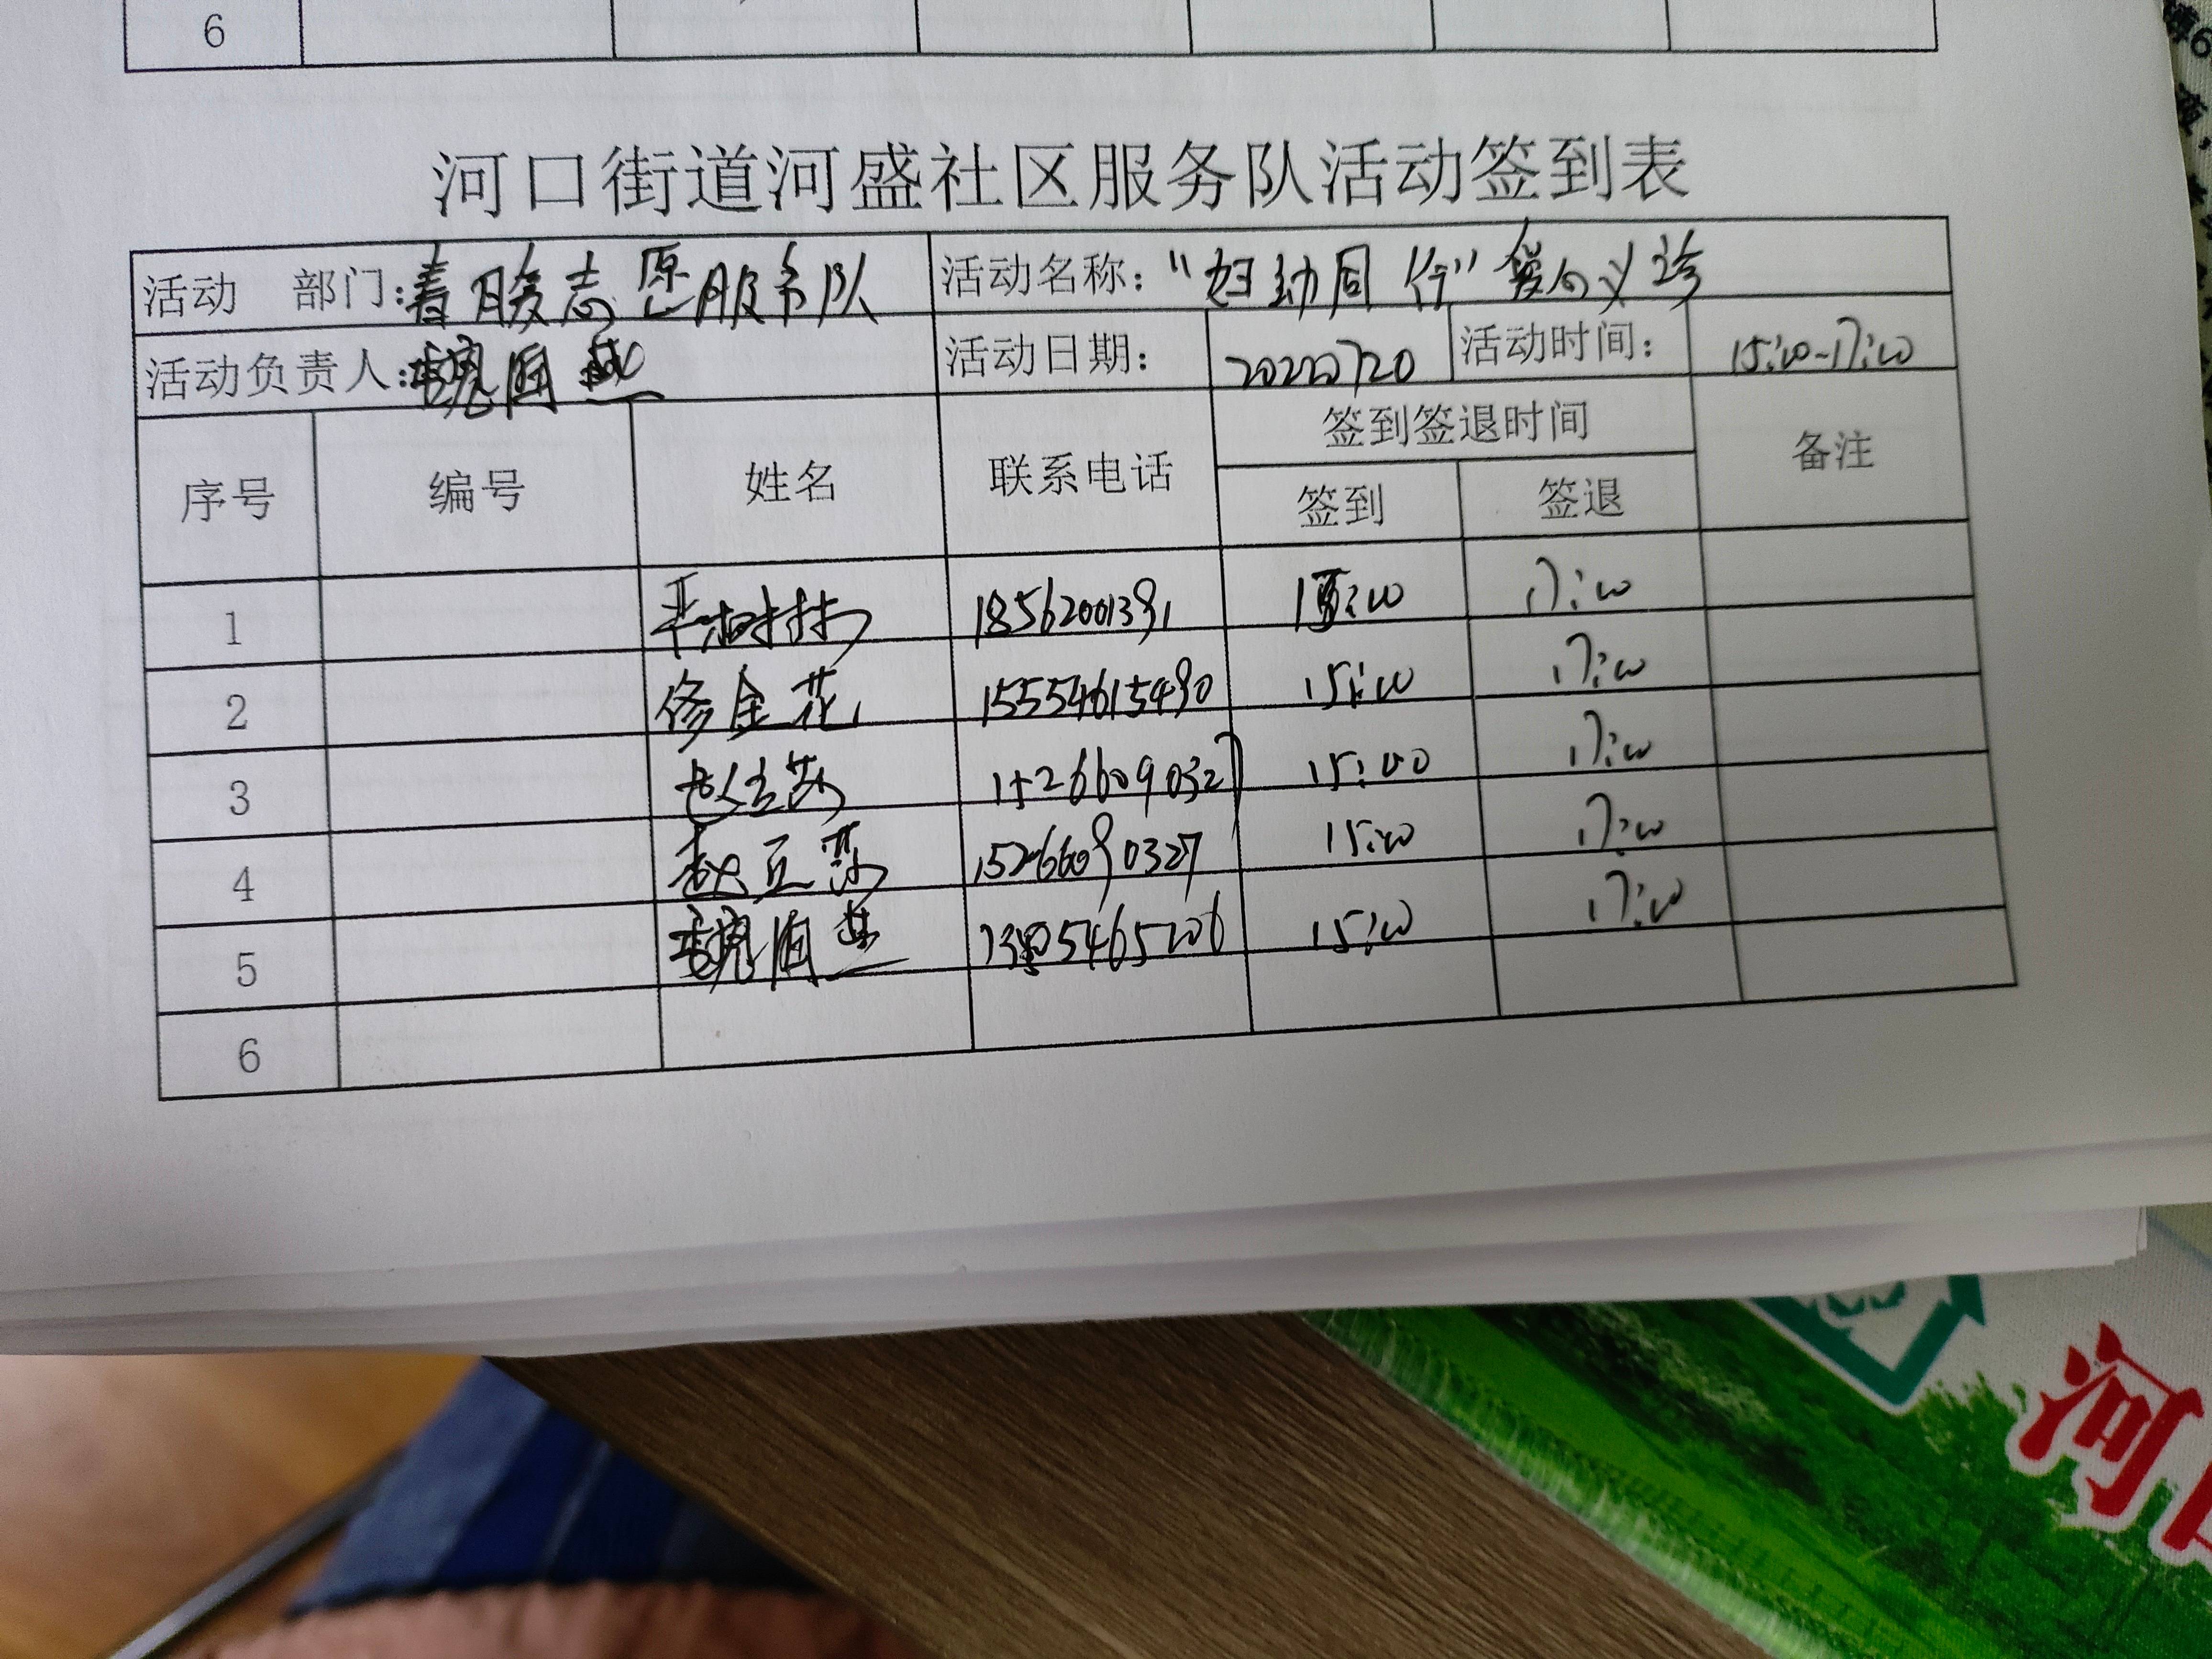 6
河口街道河盛社区服务队活动签到表
活动 部门:春暖志愿服务队 活动名称:"妇幼同行"爱心义诊
活动负责人:魏国燕 活动日期: 20220720 活动时间: 15:00-17:00
序号 编号 姓名 联系电话 签到签退时间 备注
签到 签退
1 18562001391 15:00 17:00
2 修金花 15554615490 15:00 17:00
3 15266090327 15:00 17:00
4 赵莎 15266090327 15:00 17:00
5 15:00 17:00
6
河口